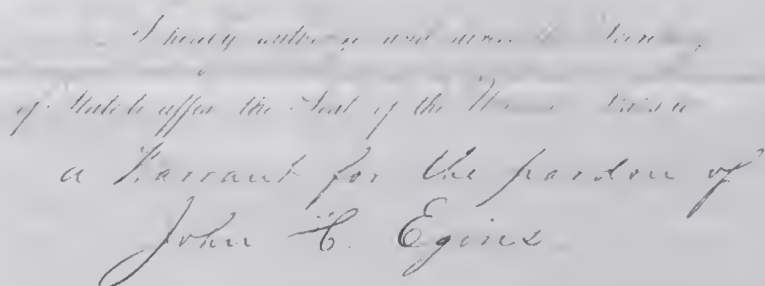 I hereby authorize and direct the Secretary
of State to affix the Seal of the United States to
a Warrant for the pardon of
John C. Egins